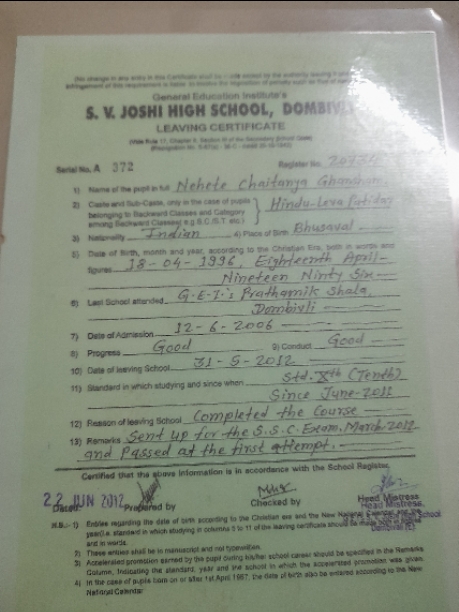 (No change in any entry in this Certificate shall be made except by the authority issuing
infringement of this requirement is liable to involve the imposition of penalty such as that of
General Education Institute's
S. V. JOSHI HIGH SCHOOL, DOMBIVLI
LEAVING CERTIFICATE
(Vide Rule 17, Chapter II, Section III of the Secondary School Code)
Serial No. A 372 Register No.
1) Name of the pupil in full Nehete Chaitanya Ghanshyam
2) Caste and Sub-Caste, only in the case of pupils
belonging to Backward Classes and Category
among Backward Classes( e.g B.C./S.T. etc.) } Hindu-Leva Patidar
3) Nationality Indian 4) Place of Birth Bhusaval
5) Date of Birth, month and year, according to the Christian Era, both in words and
figures 18-04-1996, Eighteenth April-
Nineteen Ninty Six
6) Last School attended G.E.I.'s Prathamik Shala,
Dombivli
7) Date of Admission 12-6-2006
8) Progress Good 9) Conduct Good
10) Date of leaving School 31-5-2012
11) Standard in which studying and since when Std. Xth (Tenth)
Since June-2011
12) Reason of leaving School Completed the Course
13) Remarks Sent up for the S.S.C. Exam. March 2012
and Passed at the first attempt.
Certified that the above information is in accordance with the School Register.
22 JUN 2012
Dated: Prepared by Checked by Head Mistress
Head Mistress
School
N.B.:- 1) Entries regarding the date of birth according to the Christian era and the New National Calendar and the
year(i.e. standard in which studying in columns 5 to 11 of the leaving certificate should be made both in figures
and in words.
2) These entries shall be in manuscript and not typewritten.
3) Accelerated promotion earned by the pupil during his/her school career should be specified in the Remarks
Column, indicating the standard, year and the school in which the accelerated promotion was given.
4) In the case of pupils born on or after 1st April 1957, the date of birth also be entered according to the New
National Calendar